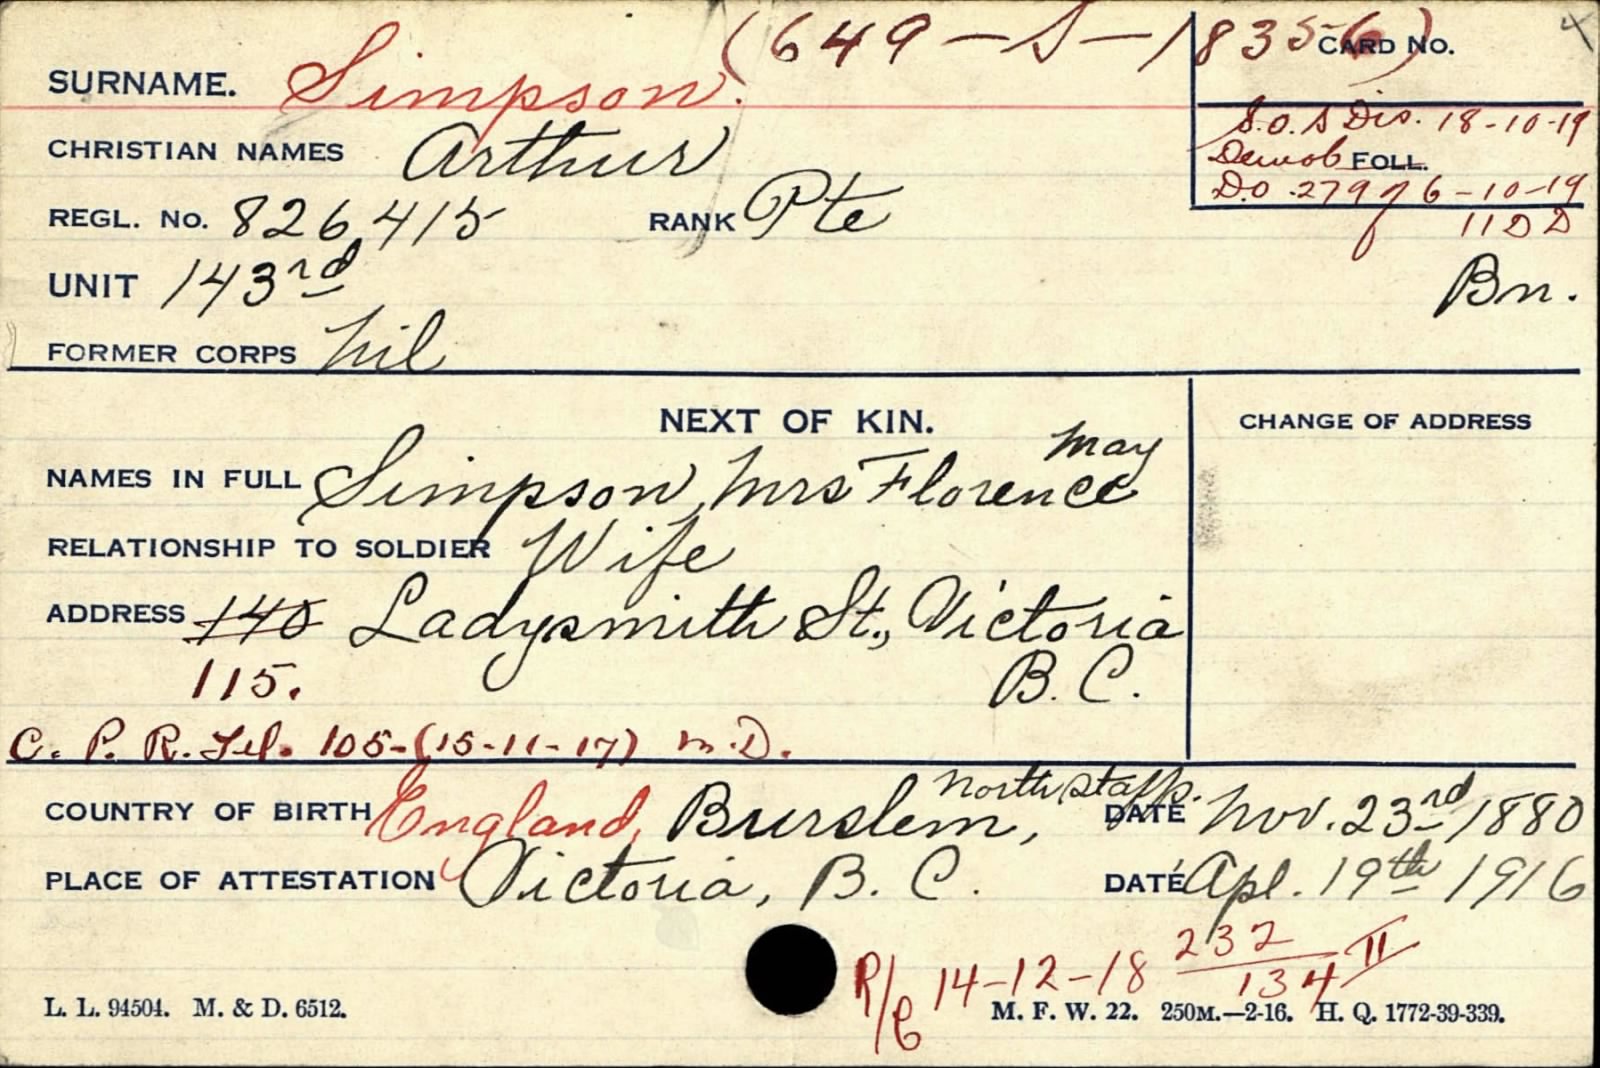 (649-S-18356) CARD NO.
SURNAME. Simpson.
S.O.S Dis. 18-10-19
CHRISTIAN NAMES Arthur
Demob FOLL.
D.O. 279 of 6-10-19
REGL. No. 826415 RANK Pte
11 D D
UNIT 143rd Bn.
FORMER CORPS Nil
NEXT OF KIN. CHANGE OF ADDRESS
May
NAMES IN FULL Simpson, Mrs Florence
RELATIONSHIP TO SOLDIER Wife
ADDRESS 140 Ladysmith St., Victoria
115. B. C.
C. P. R. Tel. 105-(15-11-17) M.D.
North Staffs.
COUNTRY OF BIRTH England, Burslem, DATE Nov. 23rd 1880
PLACE OF ATTESTATION Victoria, B. C. DATE Apl. 19th 1916
R/C 14-12-18 232/134 II
L. L. 94504. M. & D. 6512. M. F. W. 22. 250M.—2-16. H. Q. 1772-39-339.